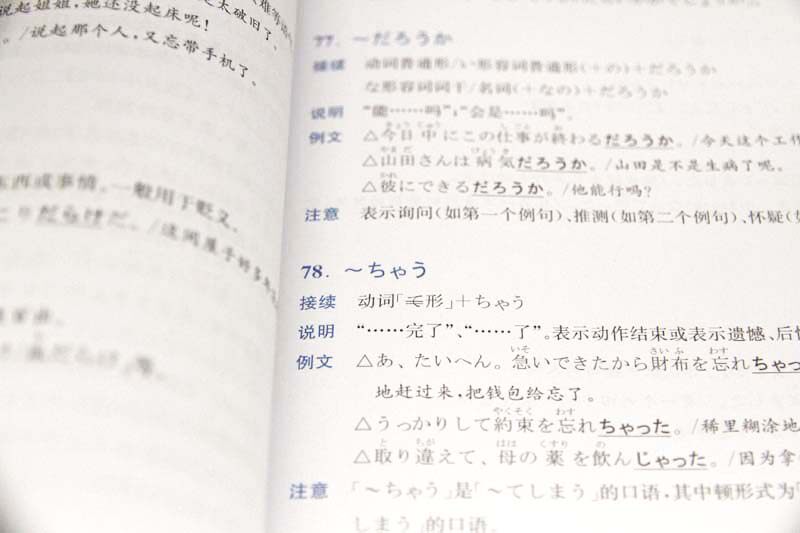 说起姐姐，她还没起床呢！
太破旧了。
。/说起那个人，又忘带手机了。
东西或事情。一般用于贬义。
77. ～だろうか
接续 动词普通形/い形容词普通形(＋の)＋だろうか
な形容词词干/名词(＋なの)＋だろうか
说明 “能……吗”；“会是……吗”。
例文 △今日中にこの仕事が終わるだろうか。/今天这个工作
△山田さんは病気だろうか。/山田是不是生病了呢。
△彼にできるだろうか。/他能行吗?
注意 表示询问(如第一个例句)、推测(如第二个例句)、怀疑(如
78. ～ちゃう
接续 动词「て形」＋ちゃう
说明 “……完了”、“……了”。表示动作结束或表示遗憾、后悔
例文 △あ、たいへん。急いできたから財布を忘れちゃっ
地赶过来，把钱包给忘了。
△うっかりして約束を忘れちゃった。/稀里糊涂地
△取り違えて、母の薬を飲んじゃった。/因为拿
注意 「～ちゃう」是「～てしまう」的口语，其中顿形式为「
しまう」的口语。